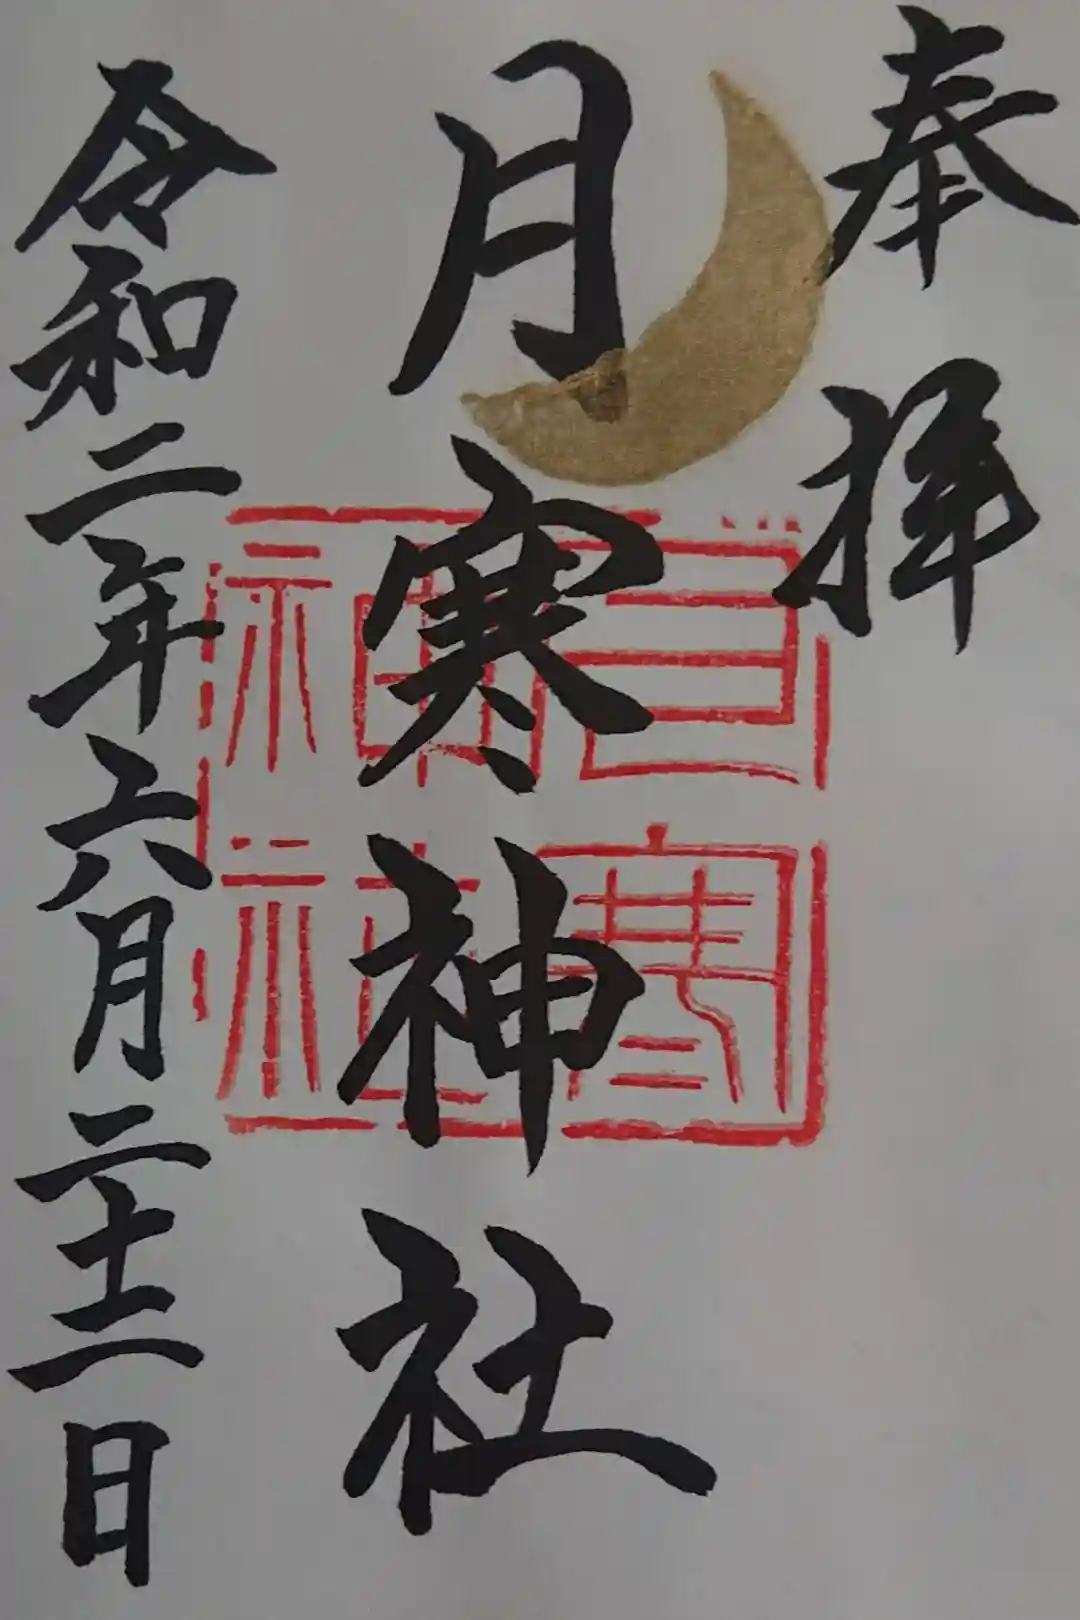 奉拝
月寒神社
月寒神社
令和二年六月二十二日